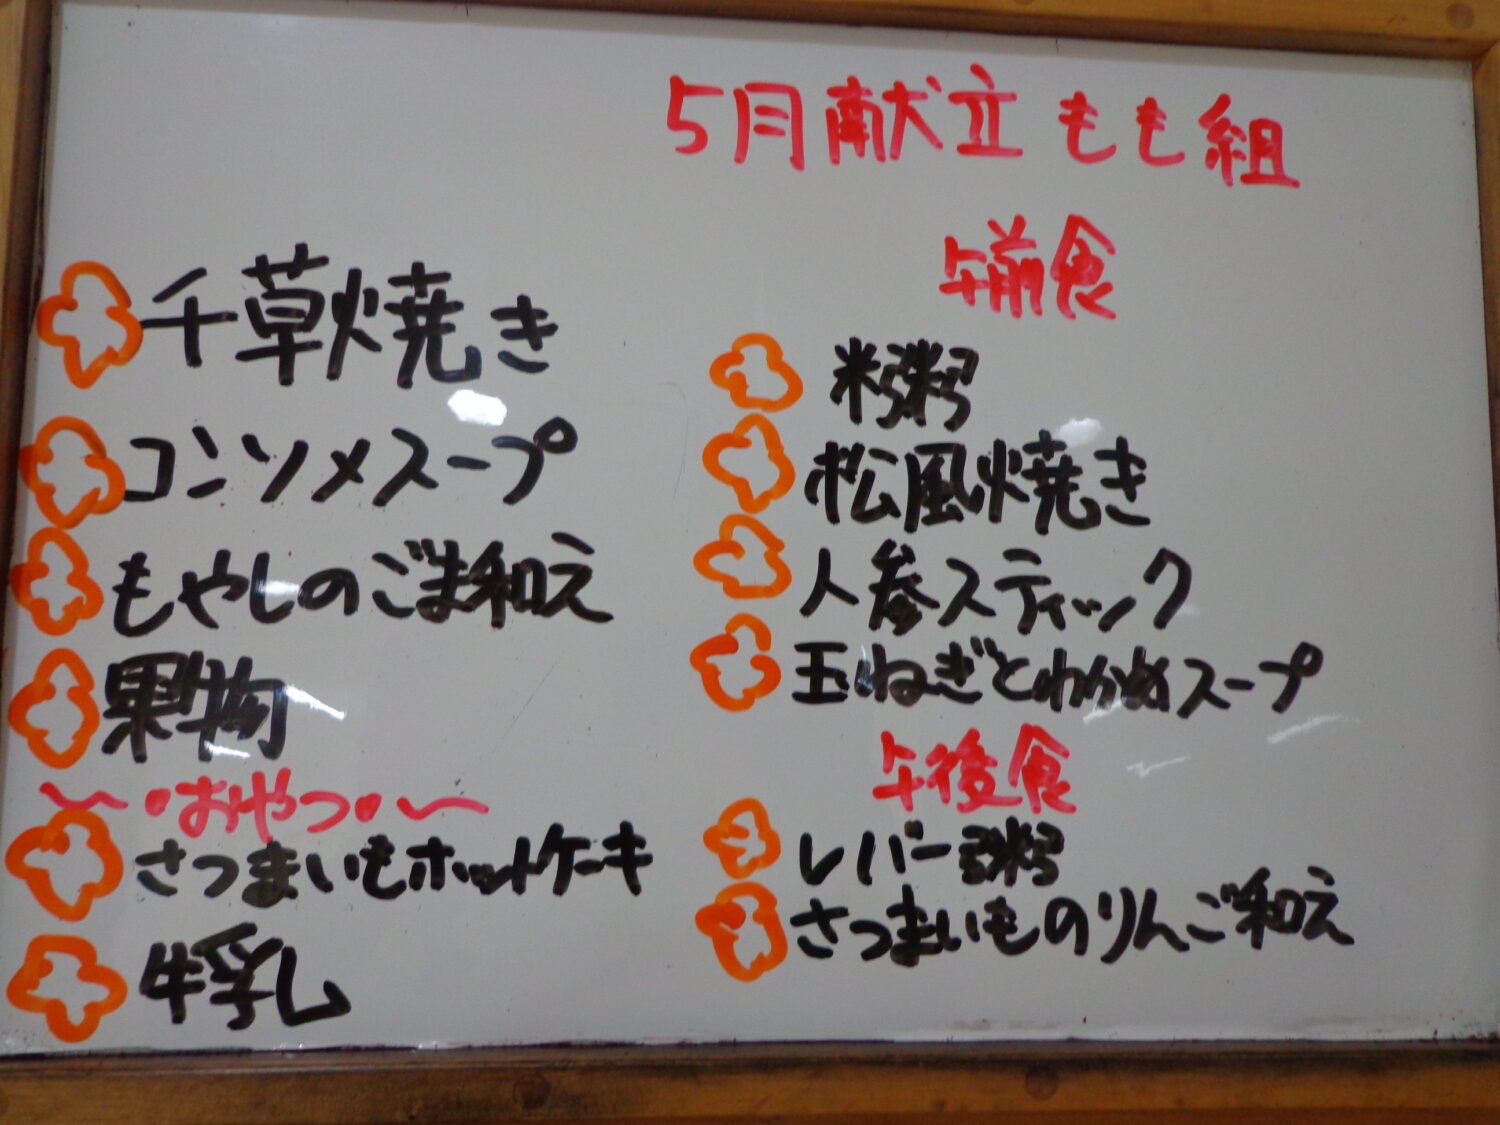 5月献立 もも組
千草焼き
コンソメスープ
もやしのごま和え
果物
〜・おやつ・〜
さつまいもホットケーキ
牛乳
午前食
米粥
松風焼き
人参スティック
玉ねぎとわかめスープ
午後食
レバー粥
さつまいものりんご和え